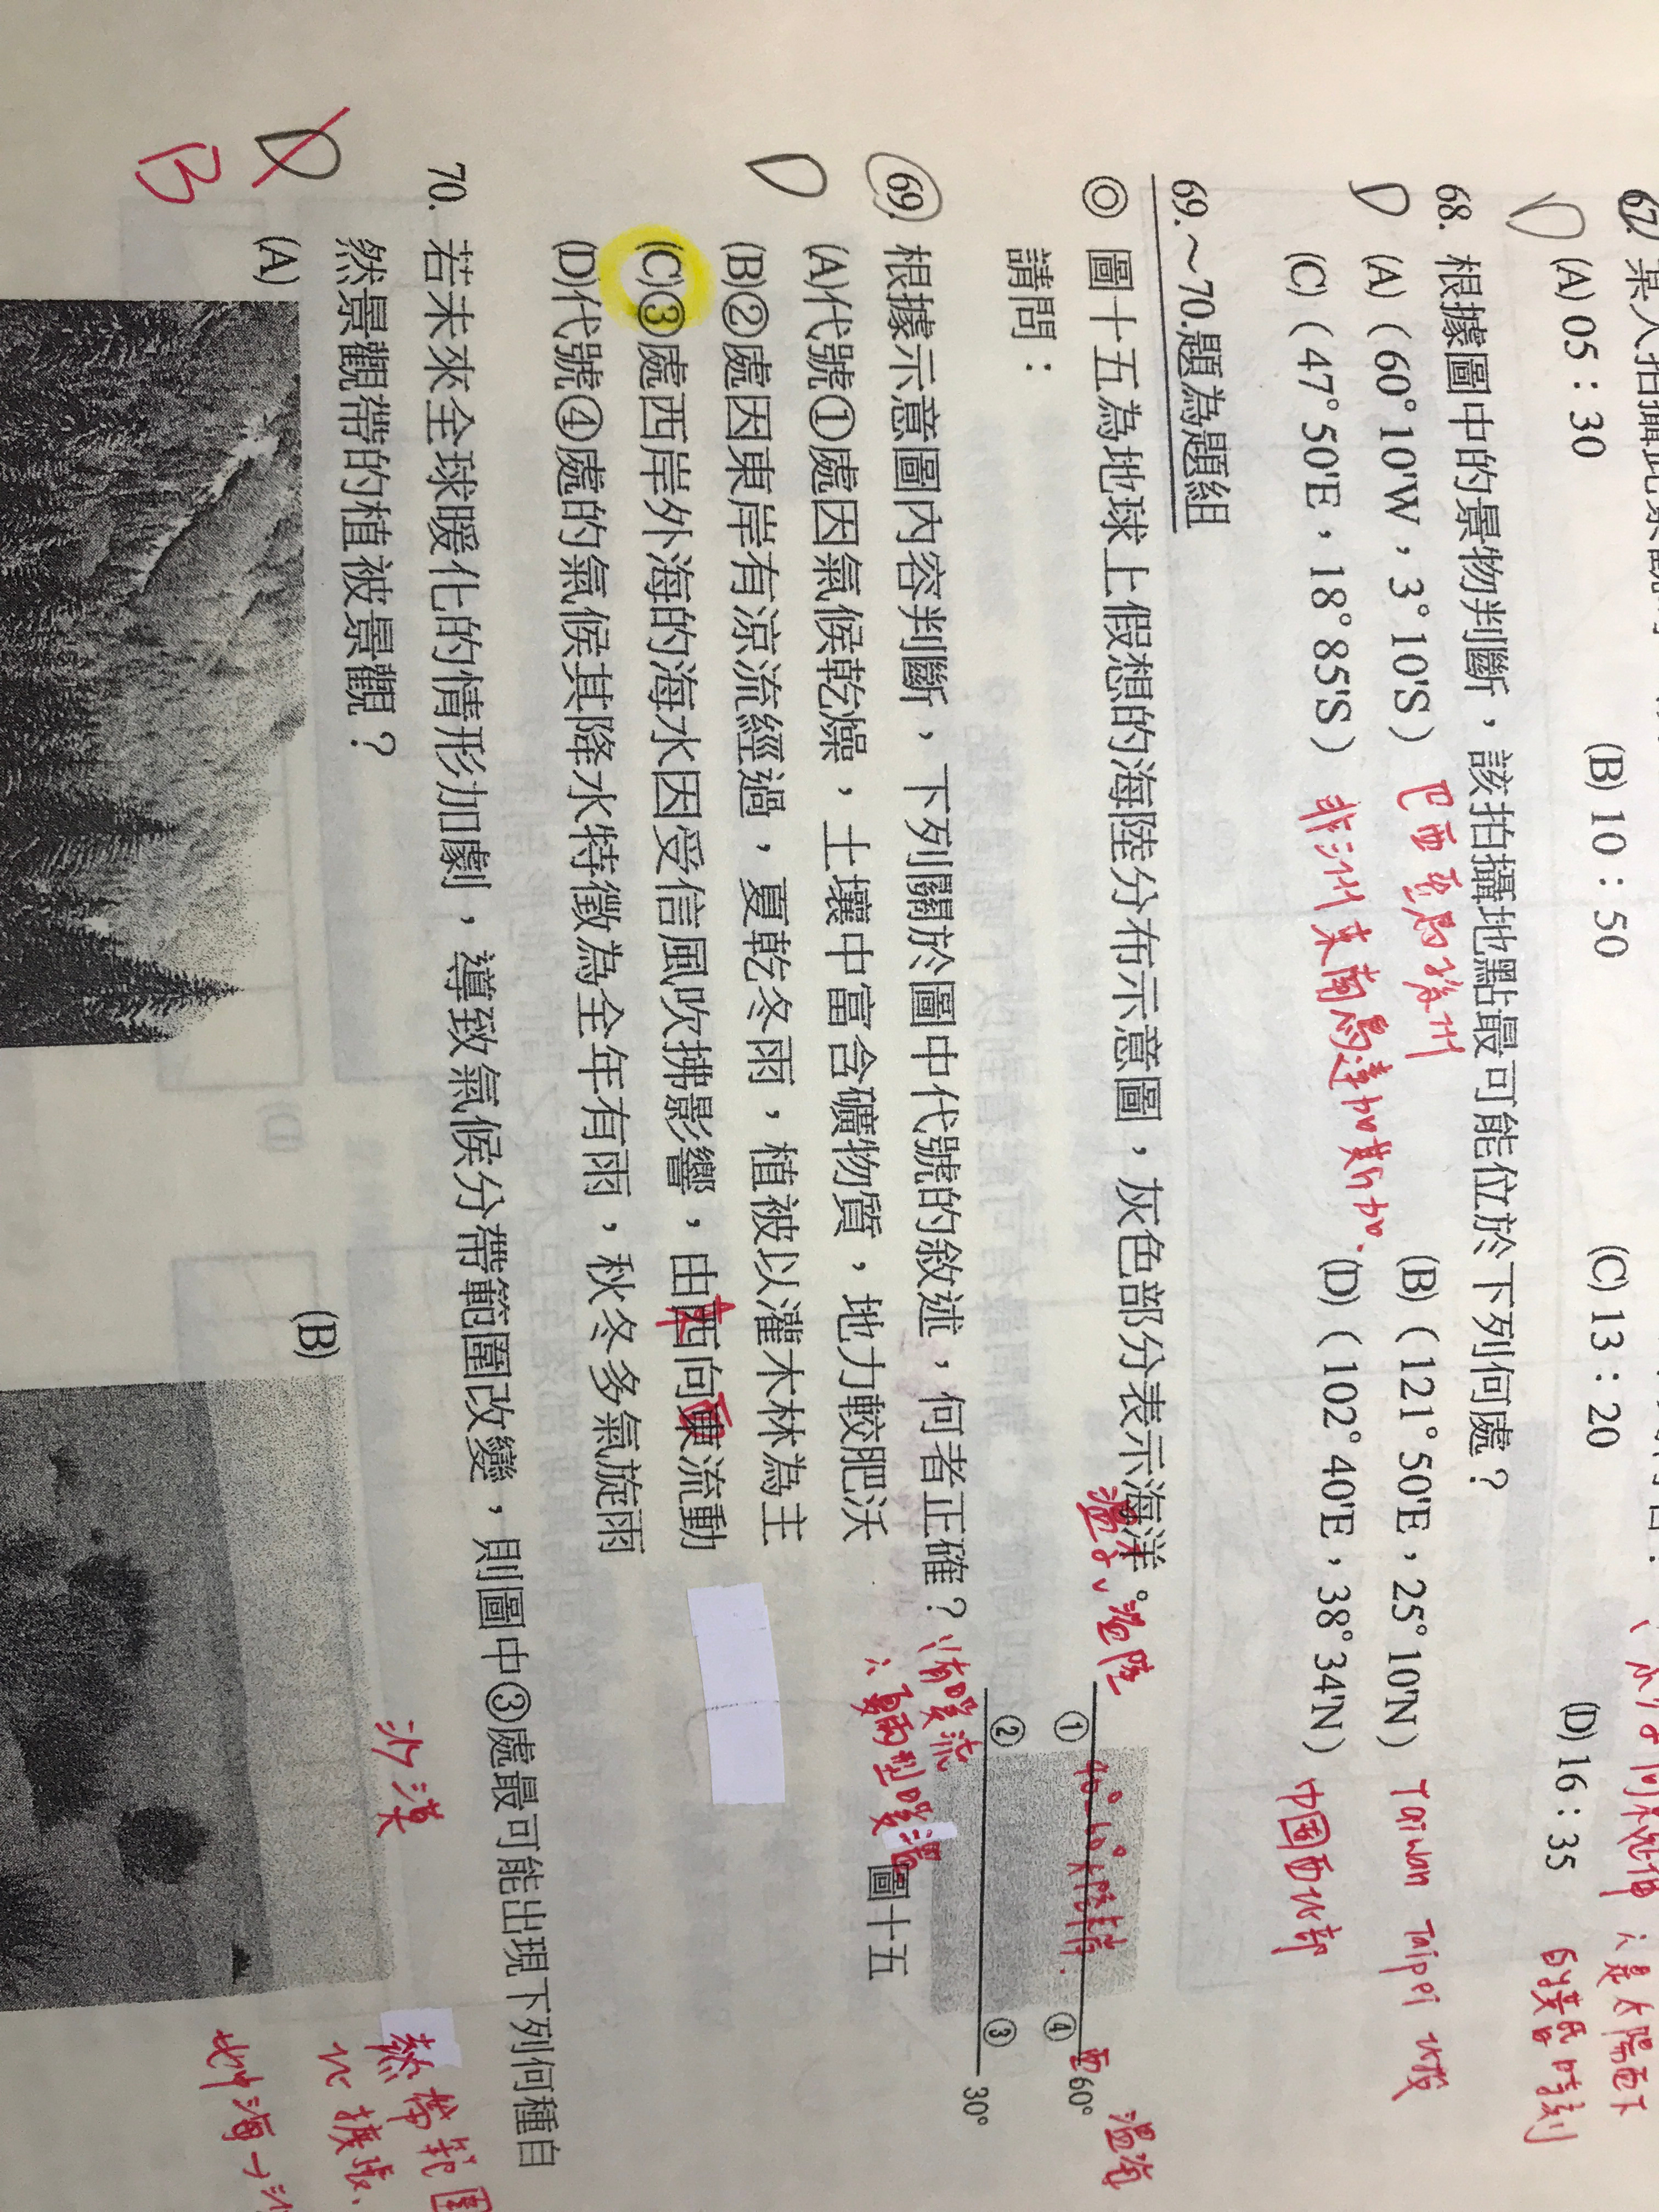 (A) 05：30
(B) 10：50
(C) 13：20
(D) 16：35
是太陽西下
68. 根據圖中的景物判斷，該拍攝地點最可能位於下列何處？
D
(A)（60°10'W，3°10'S）
(B)（121°50'E，25°10'N） Taiwan Taipei
(C)（47°50'E，18°85'S） 非洲東南馬達加斯加.
(D)（102°40'E，38°34'N） 中國西北部
69.～70.題為題組
◎ 圖十五為地球上假想的海陸分布示意圖，灰色部分表示海洋。
請問：
69. 根據示意圖內容判斷，下列關於圖中代號的敘述，何者正確？
D
(A)代號①處因氣候乾燥，土壤中富含礦物質，地力較肥沃
(B)②處因東岸有涼流經過，夏乾冬雨，植被以灌木林為主
(C)③處西岸外海的海水因受信風吹拂影響，由西向東流動
(D)代號④處的氣候其降水特徵為全年有雨，秋冬多氣旋雨
① ④ 60°
② ③ 30°
圖十五
有暖流
夏雨型暖溫
溫海
70. 若未來全球暖化的情形加劇，導致氣候分帶範圍改變，則圖中③處最可能出現下列何種自
然景觀帶的植被景觀？
D
B
(A)
(B)
沙漠
熱帶範圍
北擴張、